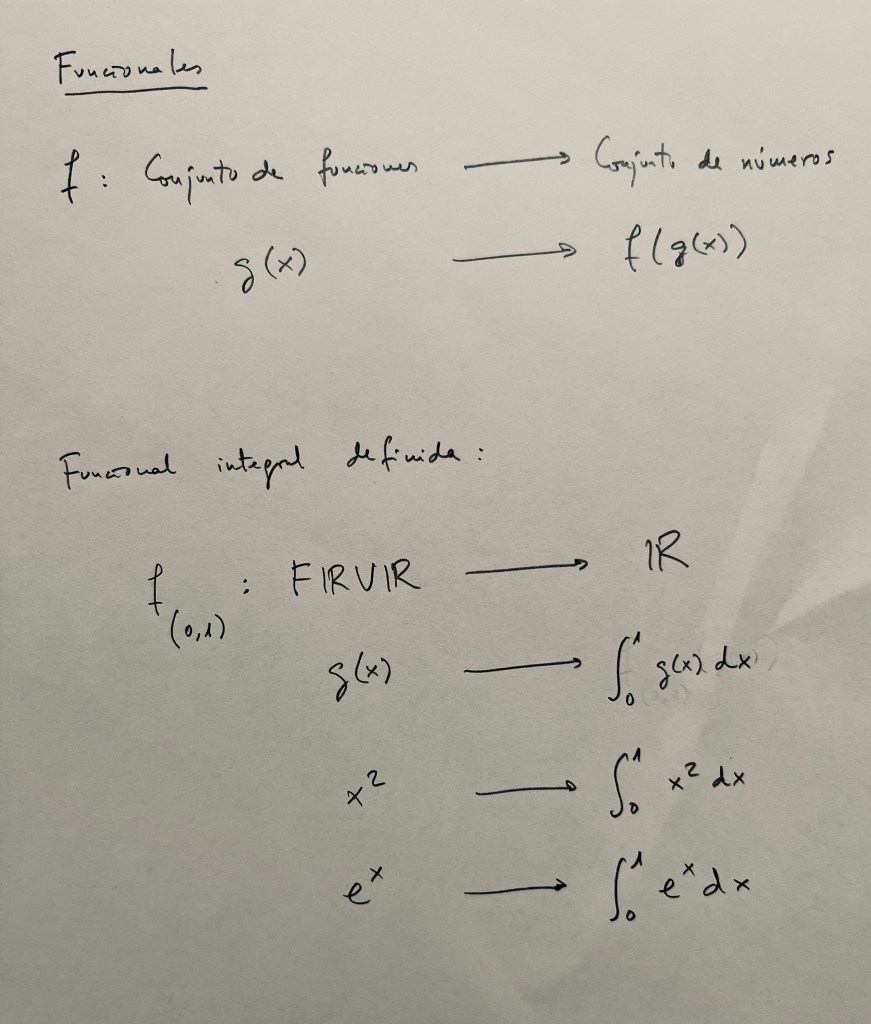 Funcionales
f : Conjunto de funciones → Conjunto de números
g(x) → f(g(x))
Funcional integral definida :
f(0,1) : FIRVIR → ℝ
g(x) → ∫₀¹ g(x) dx
x² → ∫₀¹ x² dx
eˣ → ∫₀¹ eˣ dx